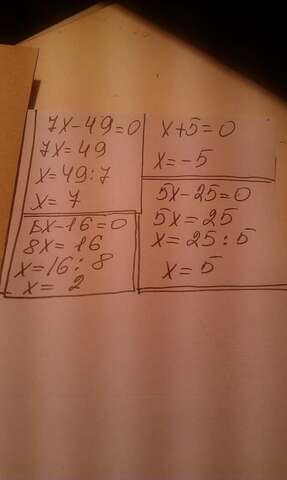 7x-49=0
7x=49
x=49:7
x=7
x+5=0
x=-5
8x-16=0
8x=16
x=16:8
x=2
5x-25=0
5x=25
x=25:5
x=5